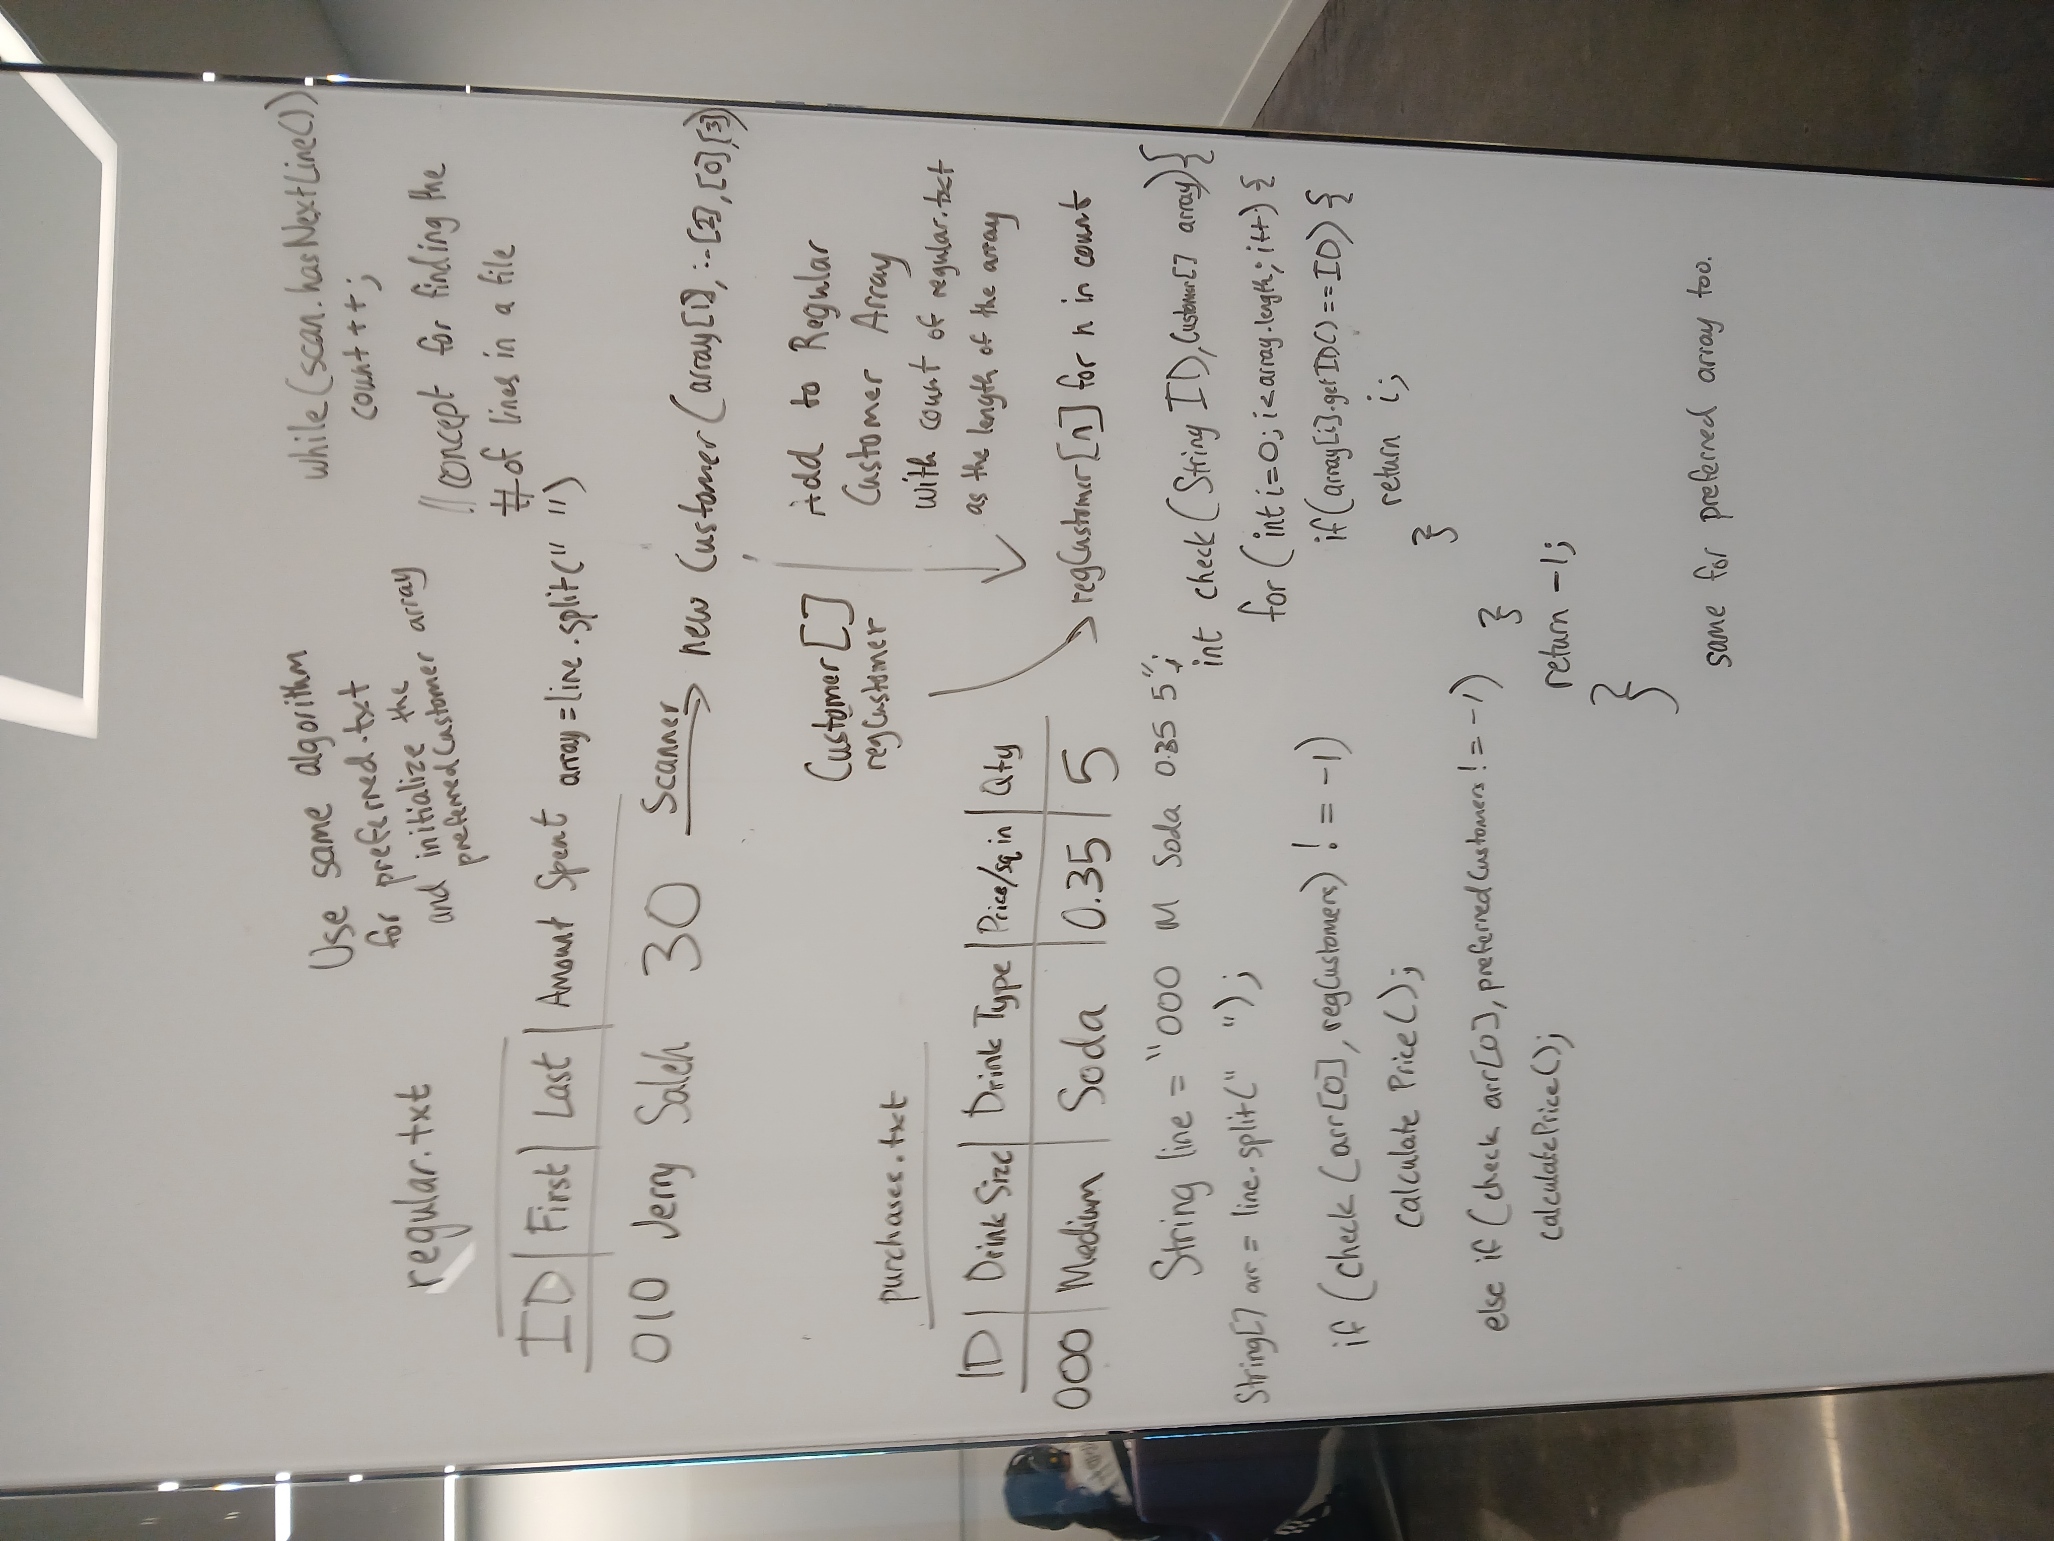 Use same algorithm
for preferred.txt
and initialize the
preferredCustomer array
while (scan.hasNextLine())
count ++;
// concept for finding the
# of lines in a file
regular.txt
ID | First | Last | Amount Spent
array = line.split(" ")
010 Jerry Saleh 30
Scanner
new Customer (array[1], :-[2], [0], [3])
Customer []
regCustomer
Add to Regular
Customer Array
with count of regular.txt
as the length of the array
regCustomer [n] for n in count
purchases.txt
ID | Drink Size | Drink Type | Price/sq in | Qty
000 | Medium | Soda | 0.35 | 5
String line = "000 M Soda 0.35 5";
String[] arr = line.split(" ");
if (check (arr[0], regCustomers) != -1)
calculate Price();
else if (check arr[0], preferredCustomers != -1)
calculatePrice();
int check (String ID, Customer[] array) {
for (int i=0; i<array.length; i++) {
if (array[i].getID() == ID) {
return i;
}
}
return -1;
}
same for preferred array too.